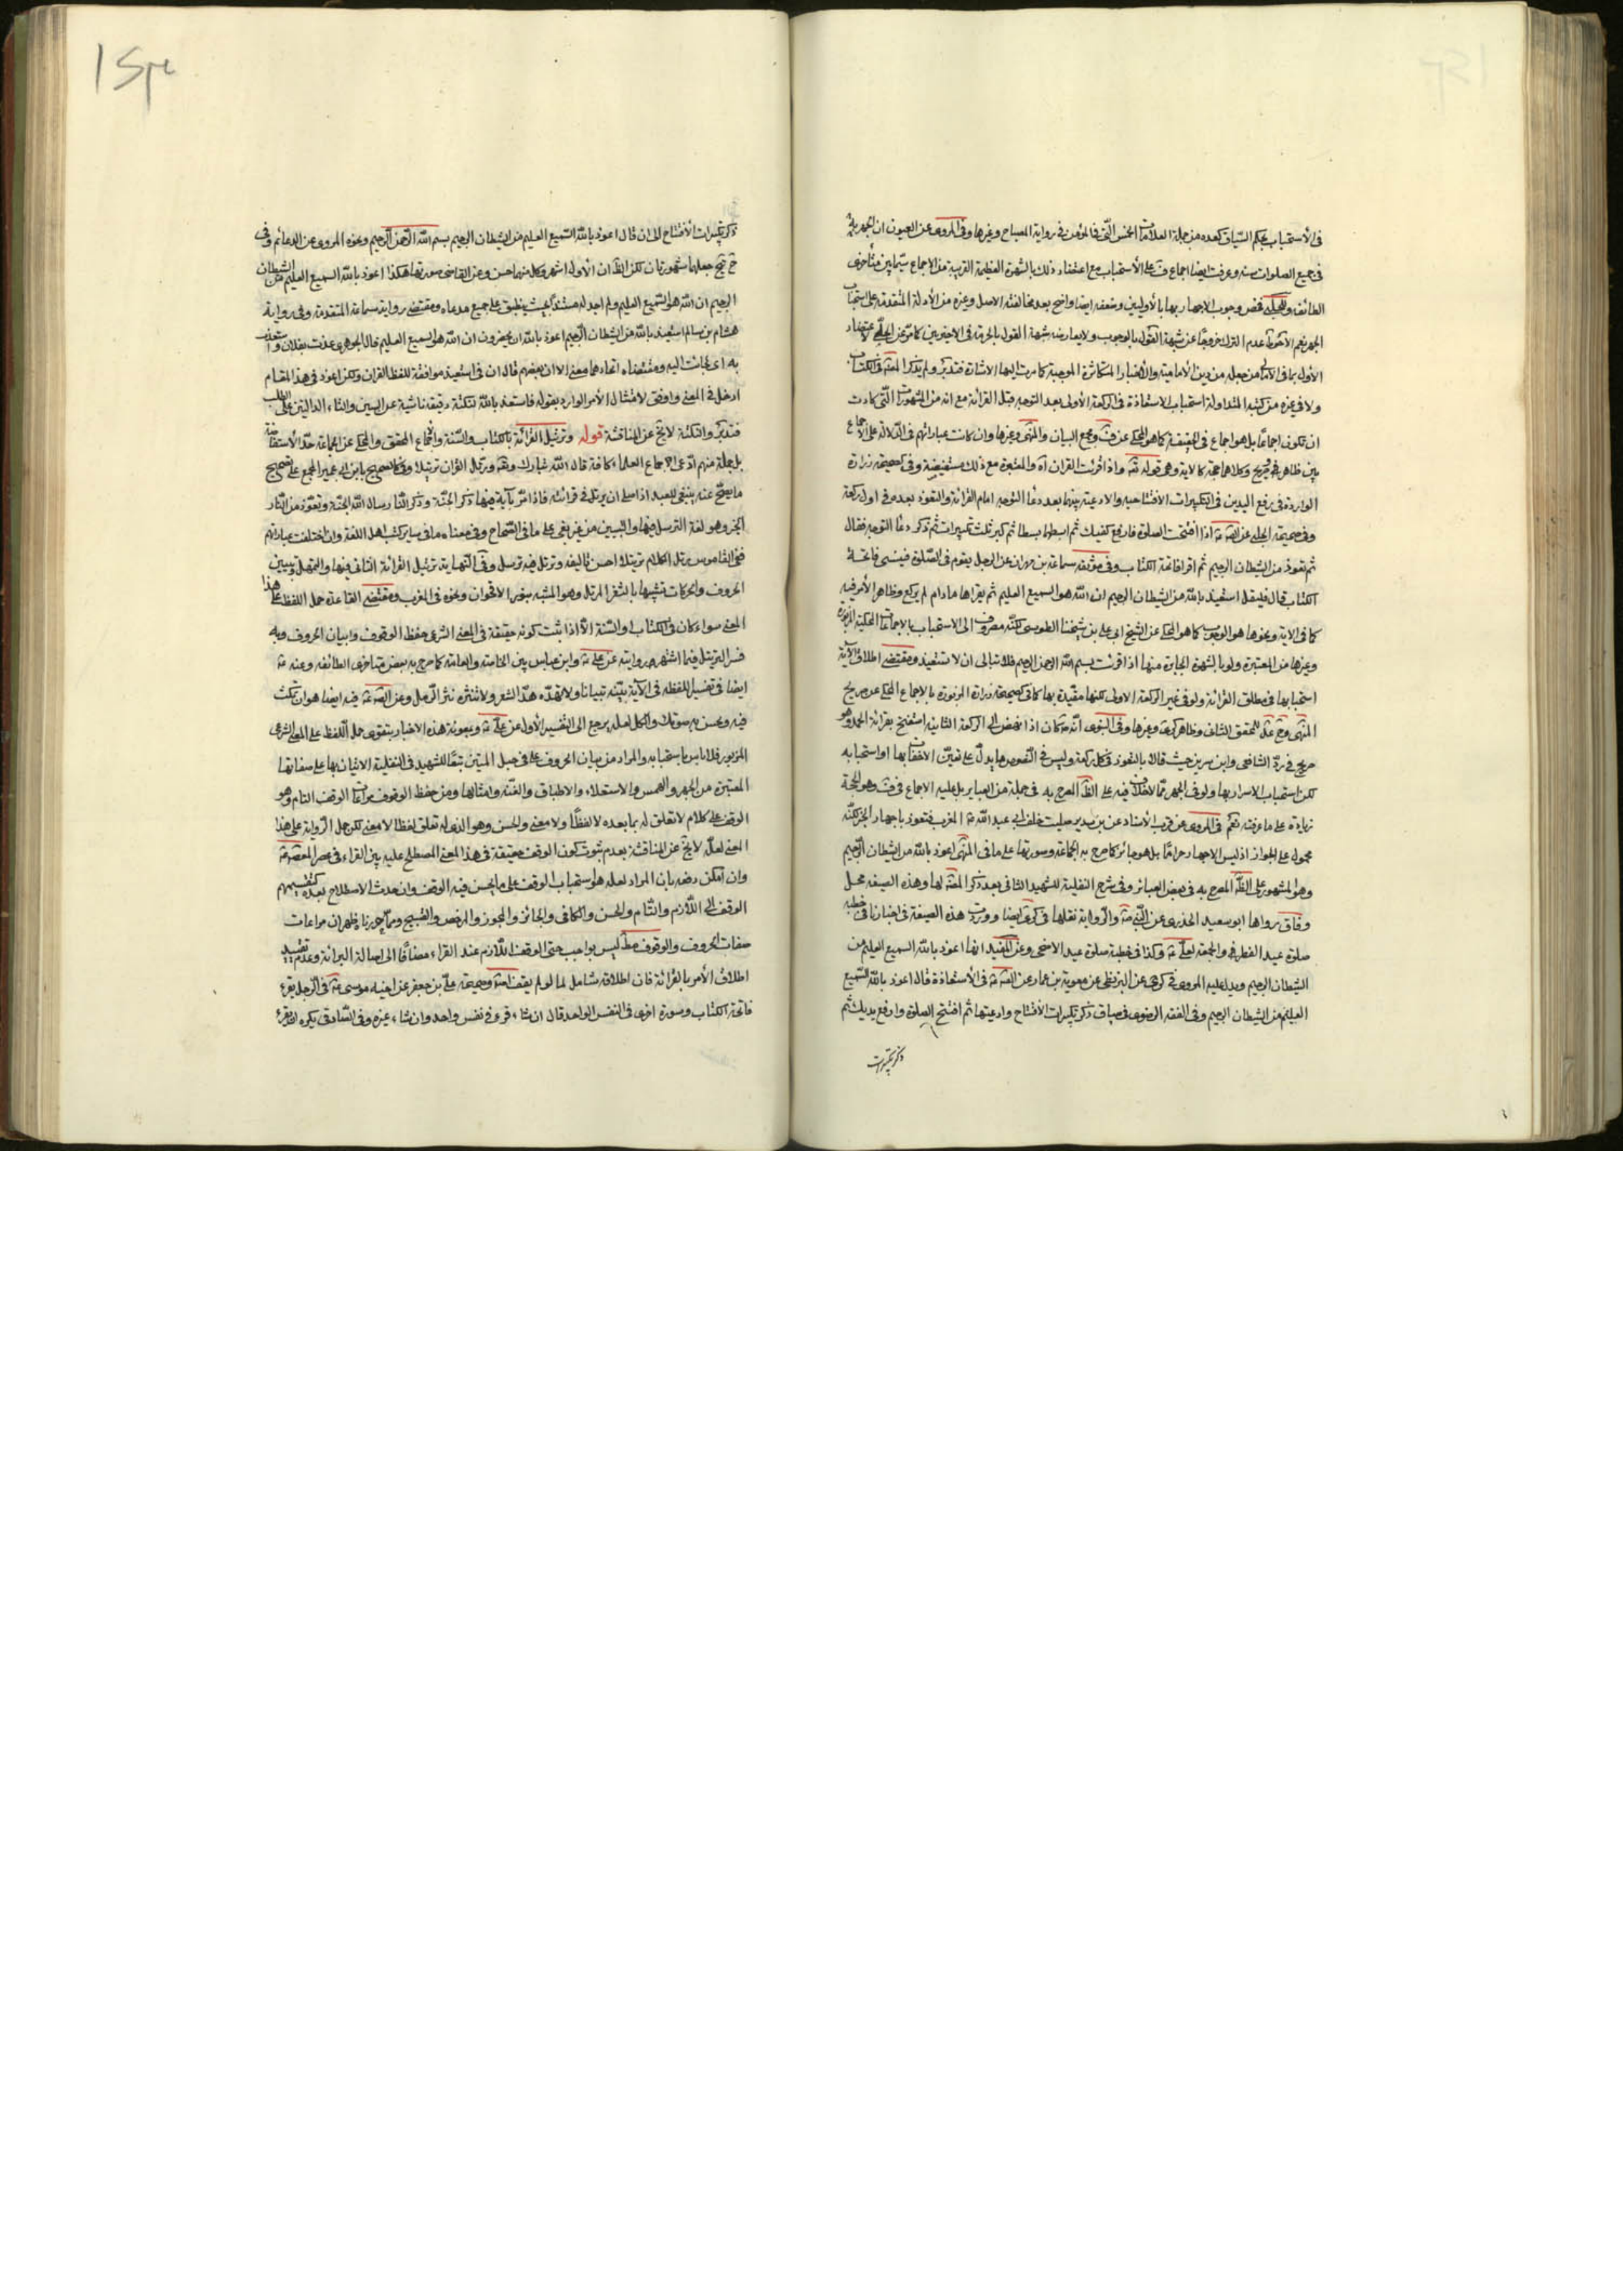 في الاستحباب بحكم السياق كعده من جملة العلامات الخمس التي في المؤمن في رواية المصباح وغيرها وفي المروي عن العيون ان الجهر بها
في جميع الصلوات سنة وعرفت ايضا اجماع ف على الاستحباب مع اعتضاد ذلك بالشهرة العظيمة القريبة من الاجماع سيما بين متاخري
الطائفه وللحلي فخص وجوب الاجهار بها بالاوليين وضعفه ايضا واضح بعد مخالفته الاصل وغيره من الادلة المتقدمة على استحباب
الجهر نعم الاحوط عدم الترك خروجا عن شبهة القول بالوجوب ولا يعارضه شبهة القول بالحرمة في الاخيرتين كما مر عن الحلي لاعتضاد
الاول بما في الامالي من جعله من دين الامامية والاخبار المتكاثرة الموجبة كما مرت اليها الاشارة فتدبر ولم يذكر المصنف في الكتاب
ولا في غيره من كتبه المتداولة استحباب الاستعاذة في الركعة الاولى بعد التوجه قبل القرائة مع انه من المشهورات التي كادت
ان تكون اجماعا بل هو اجماع في الحقيقة كما هو المحكي عن ف ومجمع البيان والمنتهى وغيرها وان كانت عباراتهم في الدلالة على الاجماع
بين ظاهر وصريح وكلاهما حجة كالاية وهي قوله تعالى واذا قرئت القران اه والمعتبرة مع ذلك مستفيضة وفي صحيحة زرارة
الواردة في رفع اليدين في التكبيرات الافتتاحيه والادعية بينها بعد دعاء التوجه امام القرائة والتعوذ بعده في اول ركعة
وفي صحيحة الحلبي عن الصم ع اذا افتتحت الصلوة فارفع كفيك ثم ابسطهما بسطا ثم كبر ثلث تكبيرات ثم ذكر دعاء التوجه فقال
ثم تعوذ من الشيطان الرجيم ثم اقرا فاتحة الكتاب وفي موثقة سماعة بن مهران عن الرجل يقوم في الصلوة فينسى فاتحة
الكتاب قال فليقل استعيذ بالله من الشيطان الرجيم ان الله هو السميع العليم ثم يقراها ما دام لم يركع وظاهر الامر فيه
كما في الاية ونحوها هو الوجوب كما هو المحكي عن الشيخ ابي علي بن شيخنا الطوسي لكنه مصروف الى الاستحباب بالاجماعات المحكية المزبورة
وغيرها من المعتبرة ولو بالشهرة الجابرة منها اذا قرئت بسم الله الرحمن الرحيم فلا تبالى ان لا تستعيذ ومقتضى اطلاق الاية
استحبابها في مطلق القرائة ولو في غير الركعة الاولى لكنها مقيدة بها كما في صحيحة زرارة المزبورة بالاجماع المحكي عن صريح
المنتهى للمحقق الثاني وظاهر كرى وغيرها وفي النبوي انه ص كان اذا نهض الى الركعة الثانية استفتح بقرائة الحمد وهو
صريح في رد الشافعي وابن سرين حيث قالا بالتعوذ في كل ركعة وليس في النصوص ما يدل على تعين الاخفات بها او استحبابه
لكن استحباب الاسرار بها ولو في الجهر مما لا خلاف فيه على الظ المصرح به في جملة من العباير بل عليه الاجماع في ف وهو الحجة
زيادة على ما عرفته نعم في المروي عن قرب الاسناد عن بن سدير صليت خلف ابي عبد الله ع المغرب فتعوذ باجهار الخ لكنه
محمول على الجواز اذ ليس الاجهار حراما بل هو جائز كما صرح به الجماعة وصورتها على ما في المنتهى اعوذ بالله من الشيطان الرجيم
وهو المشهور على الظ المصرح به في بعض العبائر وفي شرح النفلية للشهيد الثاني بعد ذكر المصنف لها وهذه الصيغه محل
وفاق رواها ابو سعيد الخدري عن النبي ص والرواية نقلها في كرى ايضا ووردت هذه الصيغة في اخبارنا في خطبة
صلوة عيد الفطر والجمعة لعلي ع وكذا في خطبة صلوة عيد الاضحى وعن المفيد انها اعوذ بالله السميع العليم من
الشيطان الرجيم ويدل عليه المروي في كرى عن البزنطي عن معوية بن عمار عن الصم ع في الاستعاذة قال اعوذ بالله السميع
العليم من الشيطان الرجيم وفي الفقه الرضوي في سياق ذكر تكبيرات الافتتاح وادعيتها ثم افتتح الصلوة وارفع يديك ثم
ذكر تكبيرات
ذكر تكبيرات الافتتاح الى ان قال اعوذ بالله السميع العليم من الشيطان الرجيم بسم الله الرحمن الرحيم ونحوه المروي عن الدعائم وفي
جعلها مشهورتان لكن الظ ان الاول اشهر وكل منهما حسن وعن القاضي صورتها هكذا اعوذ بالله السميع العليم من الشيطان
الرجيم ان الله هو السميع العليم ولم اجد له مستندا بحيث ينطبق على جميع مدعاه ومقتضى رواية سماعة المتقدمة وفي رواية
هشام بن سالم استعيذ بالله من الشيطان الرجيم اعوذ بالله ان يحضرون ان الله هو السميع العليم قال الجوهري عذت بفلان واستعذت
به اي لجائت اليه ومقتضاه اتحادهما معنى الا ان بعضهم قال ان في استعيذ موافقة للفظ القران ولكن اعوذ في هذا المقام
ادخل في المعنى واوفق لامتثال الامر الوارد بقوله فاستعذ بالله لنكتة دقيقة ناشئة عن السين والتاء الدالتين على الطلب
فتدبر والنكتة لا يخ عن المناقشة قوله وترتيل القرائة بالكتاب والسنة والاجماع المحقق والمحكي عن الجماعة حد الاستفاضة
بل جملة منهم ادعى اجماع العلماء كافة قال الله تبارك وتعالى ورتل القران ترتيلا وفي كالصحيح بابن ابي عمير المجمع على تصحيح
ما يصح عنه ينبغي للعبد اذا صلى ان يرتل في قرائته فاذا مر بآية فيها ذكر الجنة وذكر النار سال الله الجنة وتعوذ من النار
الخبر وهو لغة الترسل فيها والتبيين من غير بغي على ما في الصحاح وفي معناه ما في ساير كتب اهل اللغة وان اختلفت عباراتهم
ففي القاموس رتل الكلام ترتيلا احسن تاليفه وترتل فيه ترسل وفي النهاية ترتيل القرائة التاني فيها والتمهل وتبيين
الحروف والحركات تشبيها بالثغر المرتل وهو المشبه بنور الاقحوان ونحوه في المغرب ومقتضى القاعدة حمل اللفظ على هذا
المعنى سواء كان في الكتاب او السنة الا اذا ثبت كونه حقيقة في المعنى الشرعي حفظ الوقوف وابيان الحروف وبه
فسر الترتيل فيما اشتهر روايته عن علي ع وابن عباس بين الخاصة والعامة كما صرح به بعض متاخري الطائفه وعنه ع
ايضا في تفسير اللفظه في الاية بينه تبيانا ولا تهذه هذ الشعر ولا تنثره نثر الرمل وعن الصم ع فيه ايضا هو ان تمكث
فيه وتحسن به صوتك والكل لعله يرجع الى التفسير الاول عن علي ع وبمعونة هذه الاخبار يتقوى حمل اللفظ على المعنى الشرعي
المزبور فلا باس باستحبابه والمراد من بيان الحروف على ما في حبل المتين تبعا للشهيد في النفلية الاتيان بها على صفاتها
المعتبرة من الجهر والهمس والاستعلاء والاطباق والغنه وامثالها ومن حفظ الوقوف مراعات الوقف التام وهو
الوقف على كلام لا تعلق له بما بعده لا لفظا ولا معنى والحسن وهو الذي له تعلق لفظا لا معنى لكن حمل الرواية على هذا
المعنى لعله لا يخ عن المناقشة بعدم ثبوت كون الوقف حقيقة في هذا المعنى المصطلح عليه بين القراء في عصر المعصوم ع
وان امكن دفعه بان المراد لعله هو استحباب الوقف على ما يحسن فيه الوقف وان حدث الاصطلاح بعده كتقسيمهم
الوقف الى اللازم والتام والحسن والكافي والجائز والمجوز والمرخص والقبيح ومما حررنا ظهر ان مراعات
صفات الحروف والوقوف مط ليس بواجب حتى الوقف اللازم عند القراء مضافا الى اصالة البرائة وعدم تقييد
اطلاق الامر بالقرائة فان اطلاقه شامل لما لو لم يقف اصلا وصحيحة علي بن جعفر عن اخيه موسى ع في الرجل يقرء
فاتحة الكتاب وسورة اخرى في النفس الواحد قال ان شاء قرء في نفس واحد وان شاء غيره وفي الصادقي يكره ان يقرء